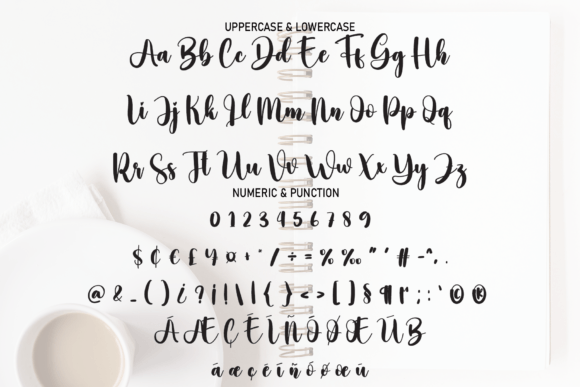 UPPERCASE & LOWERCASE
Aa Bb Cc Dd Ee Ff Gg Hh
Ii Jj Kk Ll Mm Nn Oo Pp Qq
Rr Ss Tt Uu Vv Ww Xx Yy Zz
NUMERIC & PUNCTION
0 1 2 3 4 5 6 7 8 9
$ ¢ € £ ¥ ¤ + * / ÷ = % ‰ " ' # - ^ , .
@ & _ ( ) ¿ ? ¡ ! \ | { } < > [ ] § ¶ r ; : ` © ®
Á Æ Ç É Í Ñ Ó Ø Œ Ú ß
á æ ç é í ñ ó ø œ ú